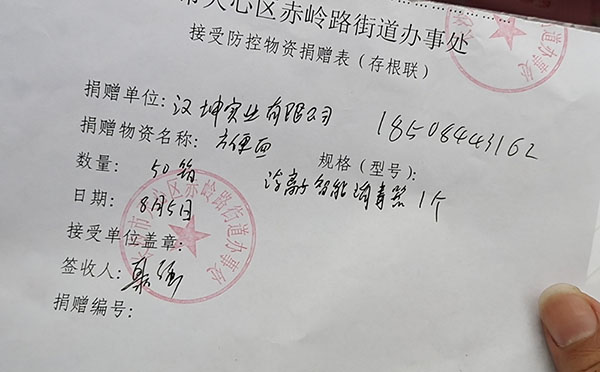 市天心区赤岭路街道办事处
接受防控物资捐赠表（存根联）
捐赠单位：汉坤实业有限公司 18508443162
捐赠物资名称：方便面
规格（型号）：
数量：50箱
智能消毒器1个
日期：8月5日
接受单位盖章：
签收人：
捐赠编号：
心区赤岭路街道办事处
道办事处